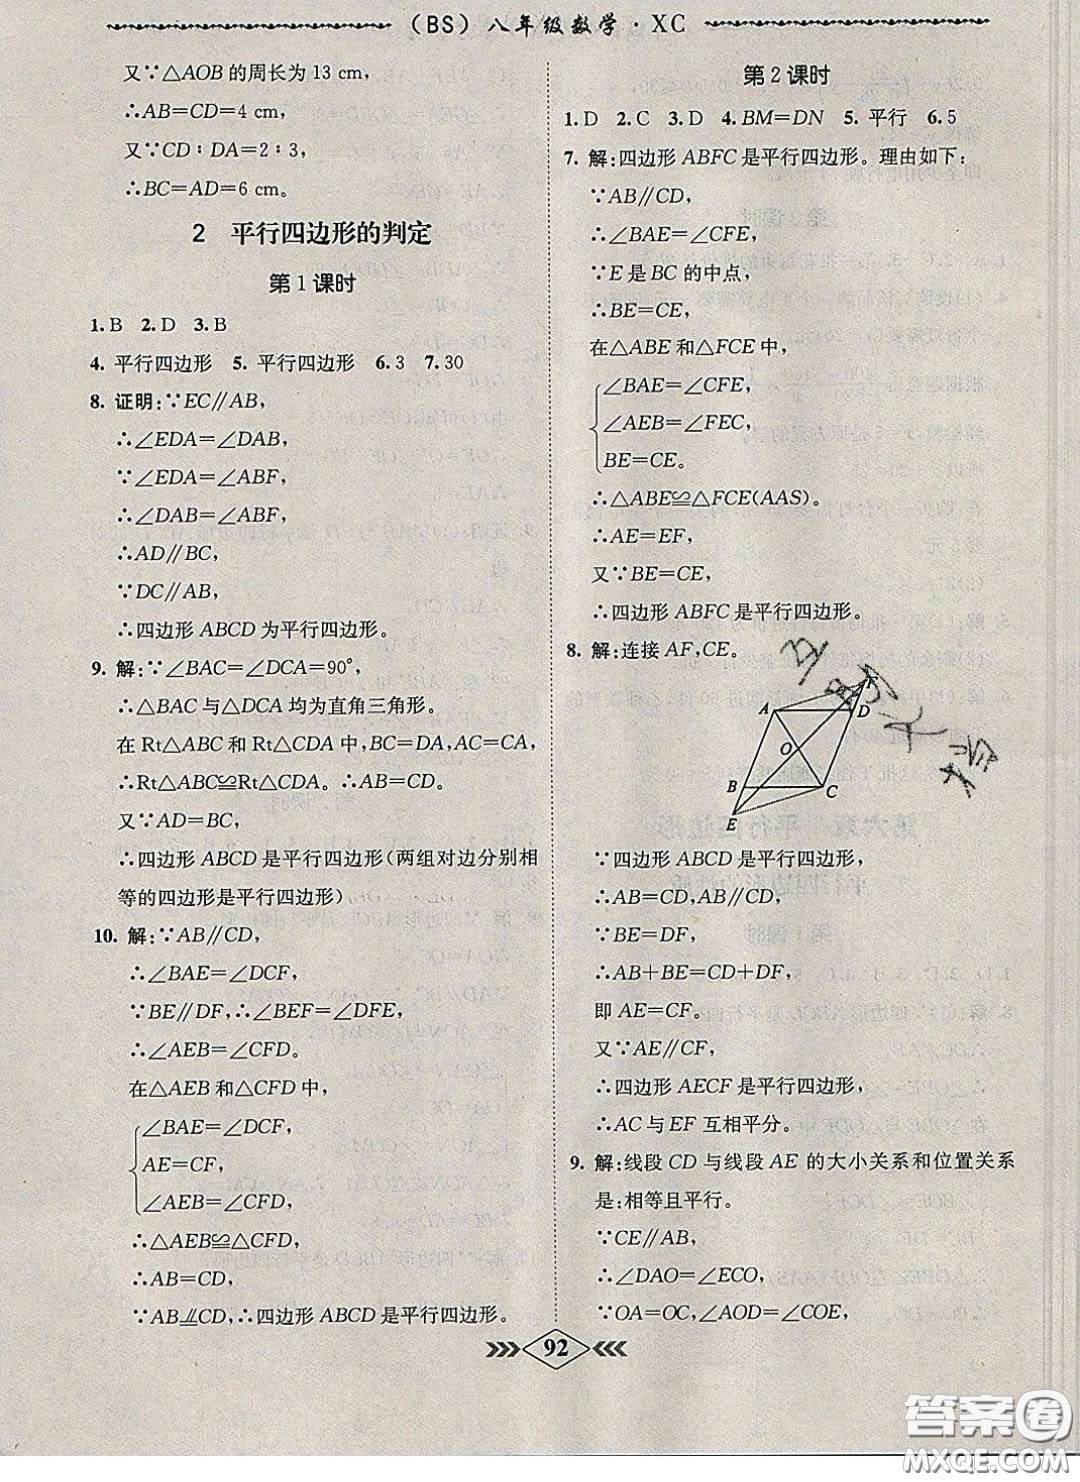 (BS)八年级数学·XC
又∵△AOB的周长为13 cm,
∴AB=CD=4 cm,
又∵CD∶DA=2∶3,
∴BC=AD=6 cm。
2 平行四边形的判定
第1课时
1.B 2.D 3.B
4. 平行四边形 5. 平行四边形 6.3 7.30
8. 证明:∵EC∥AB,
∴∠EDA=∠DAB,
∵∠EDA=∠ABF,
∴∠DAB=∠ABF,
∴AD∥BC,
∵DC∥AB,
∴四边形ABCD为平行四边形。
9. 解:∵∠BAC=∠DCA=90°,
∴△BAC与△DCA均为直角三角形。
在Rt△ABC和Rt△CDA中,BC=DA,AC=CA,
∴Rt△ABC≌Rt△CDA。∴AB=CD。
又∵AD=BC,
∴四边形ABCD是平行四边形(两组对边分别相
等的四边形是平行四边形)
10. 解:∵AB∥CD,
∴∠BAE=∠DCF,
∵BE∥DF,∴∠BEF=∠DFE,
∴∠AEB=∠CFD。
在△AEB和△CFD中,
∠BAE=∠DCF,
AE=CF,
∠AEB=∠CFD,
∴△AEB≌△CFD,
∴AB=CD,
∵AB⫽CD,∴四边形ABCD是平行四边形。
第2课时
1.D 2.C 3.D 4.BM=DN 5. 平行 6.5
7. 解:四边形ABFC是平行四边形。理由如下:
∵AB∥CD,
∴∠BAE=∠CFE,
∵E是BC的中点,
∴BE=CE,
在△ABE和△FCE中,
∠BAE=∠CFE,
∠AEB=∠FEC,
BE=CE。
∴△ABE≌△FCE(AAS)。
∴AE=EF,
又∵BE=CE,
∴四边形ABFC是平行四边形。
8. 解:连接AF,CE。
F
A
D
O
B
C
E
∵四边形ABCD是平行四边形,
∴AB=CD,AB∥CD,
∵BE=DF,
∴AB+BE=CD+DF,
即AE=CF。
又∵AE∥CF,
∴四边形AECF是平行四边形,
∴AC与EF互相平分。
9. 解:线段CD与线段AE的大小关系和位置关系
是:相等且平行。
∵CE∥AB,
∴∠DAO=∠ECO,
∵OA=OC,∠AOD=∠COE,
92
答案圈
MXQE.COM